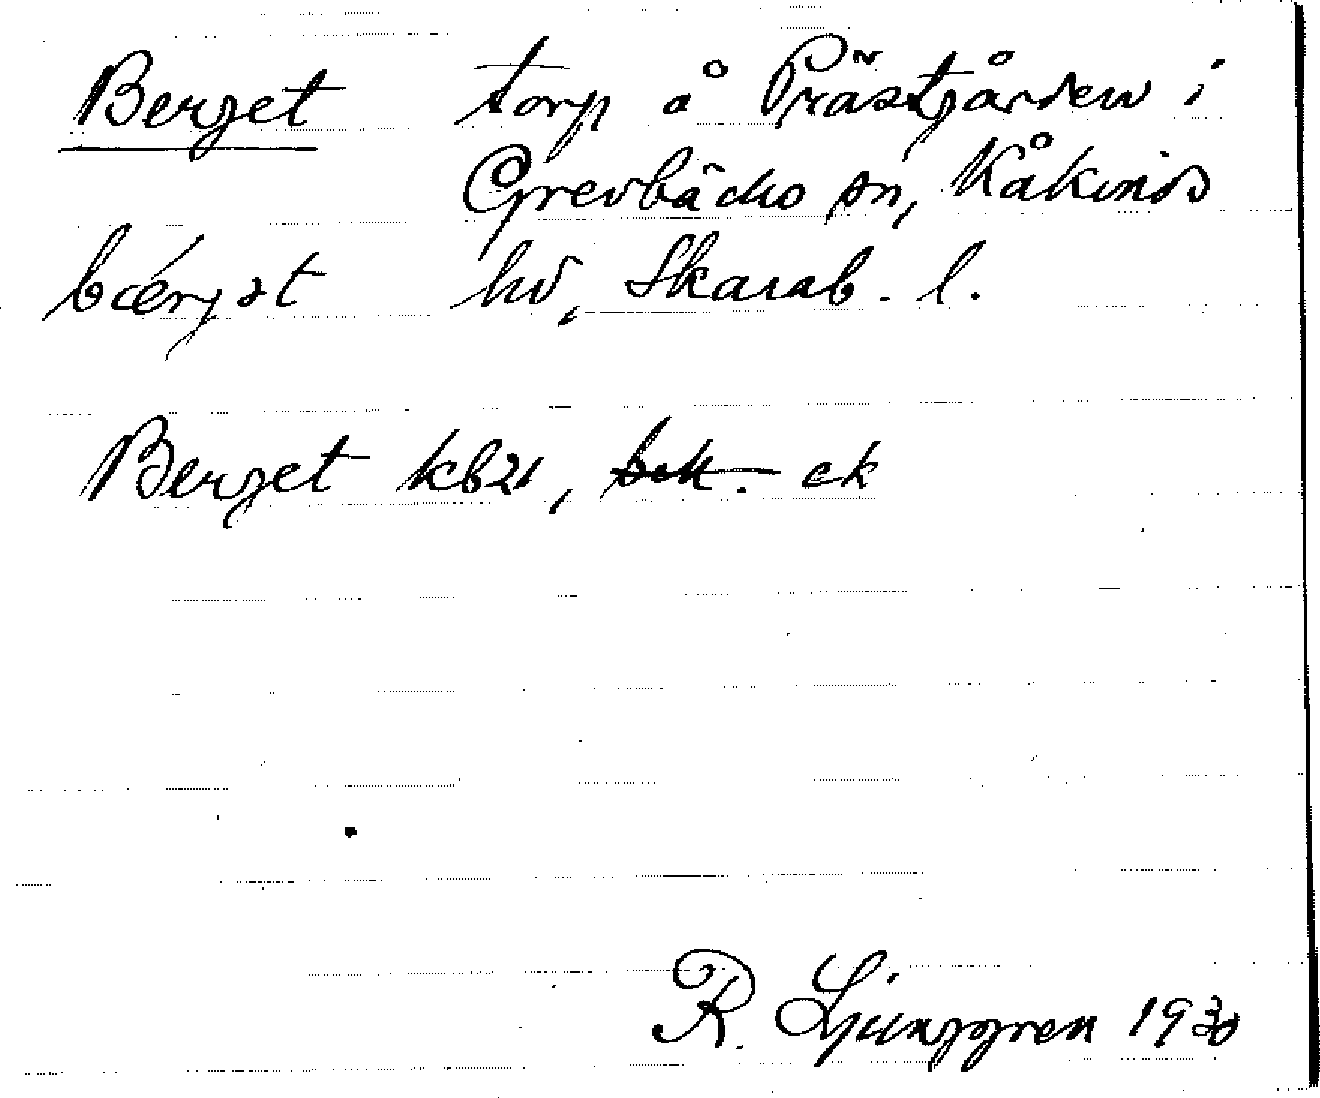 Berget torp å Prästgården i
Grevbäcks sn, Kåkinds
bǽrjət hd, Skarab. l.
Berget kb21, bek. ek
R. Ljunggren 1930